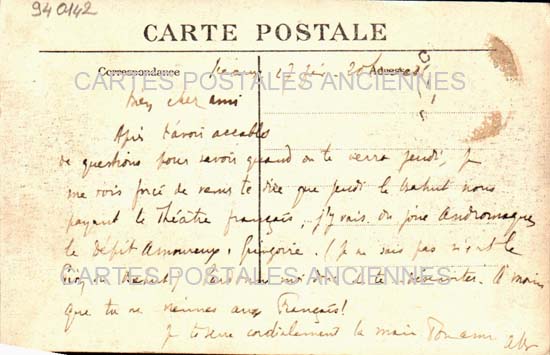 940142
CARTE POSTALE
CARTES POSTALES ANCIENNES
Correspondance
Adresse
Mon cher ami
Après t'avoir accablé
de questions pour savoir quand on te verra jeudi, je
me vois forcé de venir te dire que jeudi le bahut nous
payant le Théâtre français, j'y vais. On joue Andromaque,
le Dépit Amoureux, Gringoire. (Je ne sais pas si c'est le
CARTES POSTALES ANCIENNES
A moins
que tu ne viennes aux Français!
Je te serre cordialement la main Ton ami